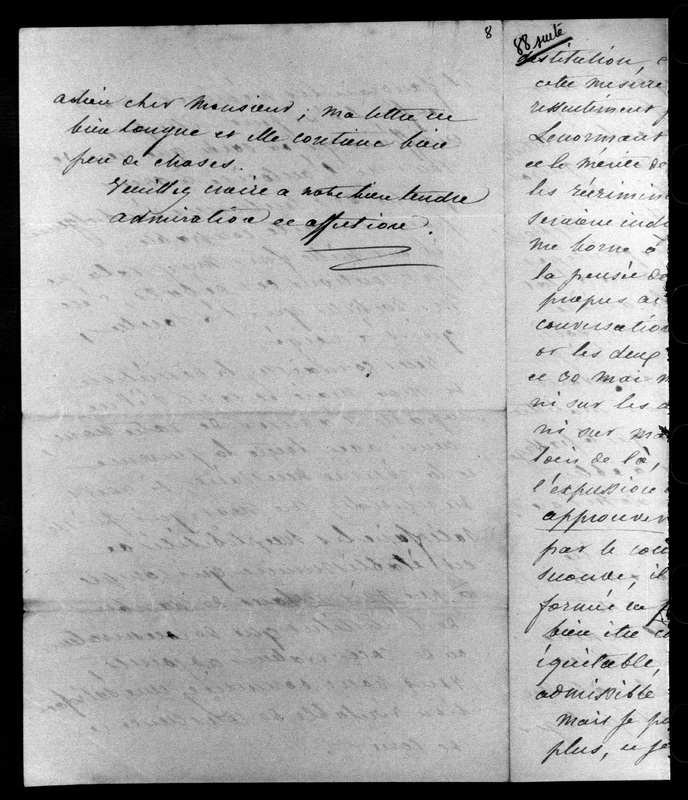 8
adieu cher Monsieur ; ma lettre est
bien longue et elle contient bien
peu de choses.
Veuillez croire a notre bien tendre
admiration et affection.
88 suite
destitution, c
cette misère
ressentiment p
Lenormant
et le mener de
les récrimin
seraient ind
me borne à
la pensée de
propos a
conversation
or les deux
ce 30 mai n
ni sur les a
ni sur ma
loin de là,
l'expression
approuver
par le con
monde, il
formée en p
bien être c
équitable,
admissible
mais je p
plus, et je